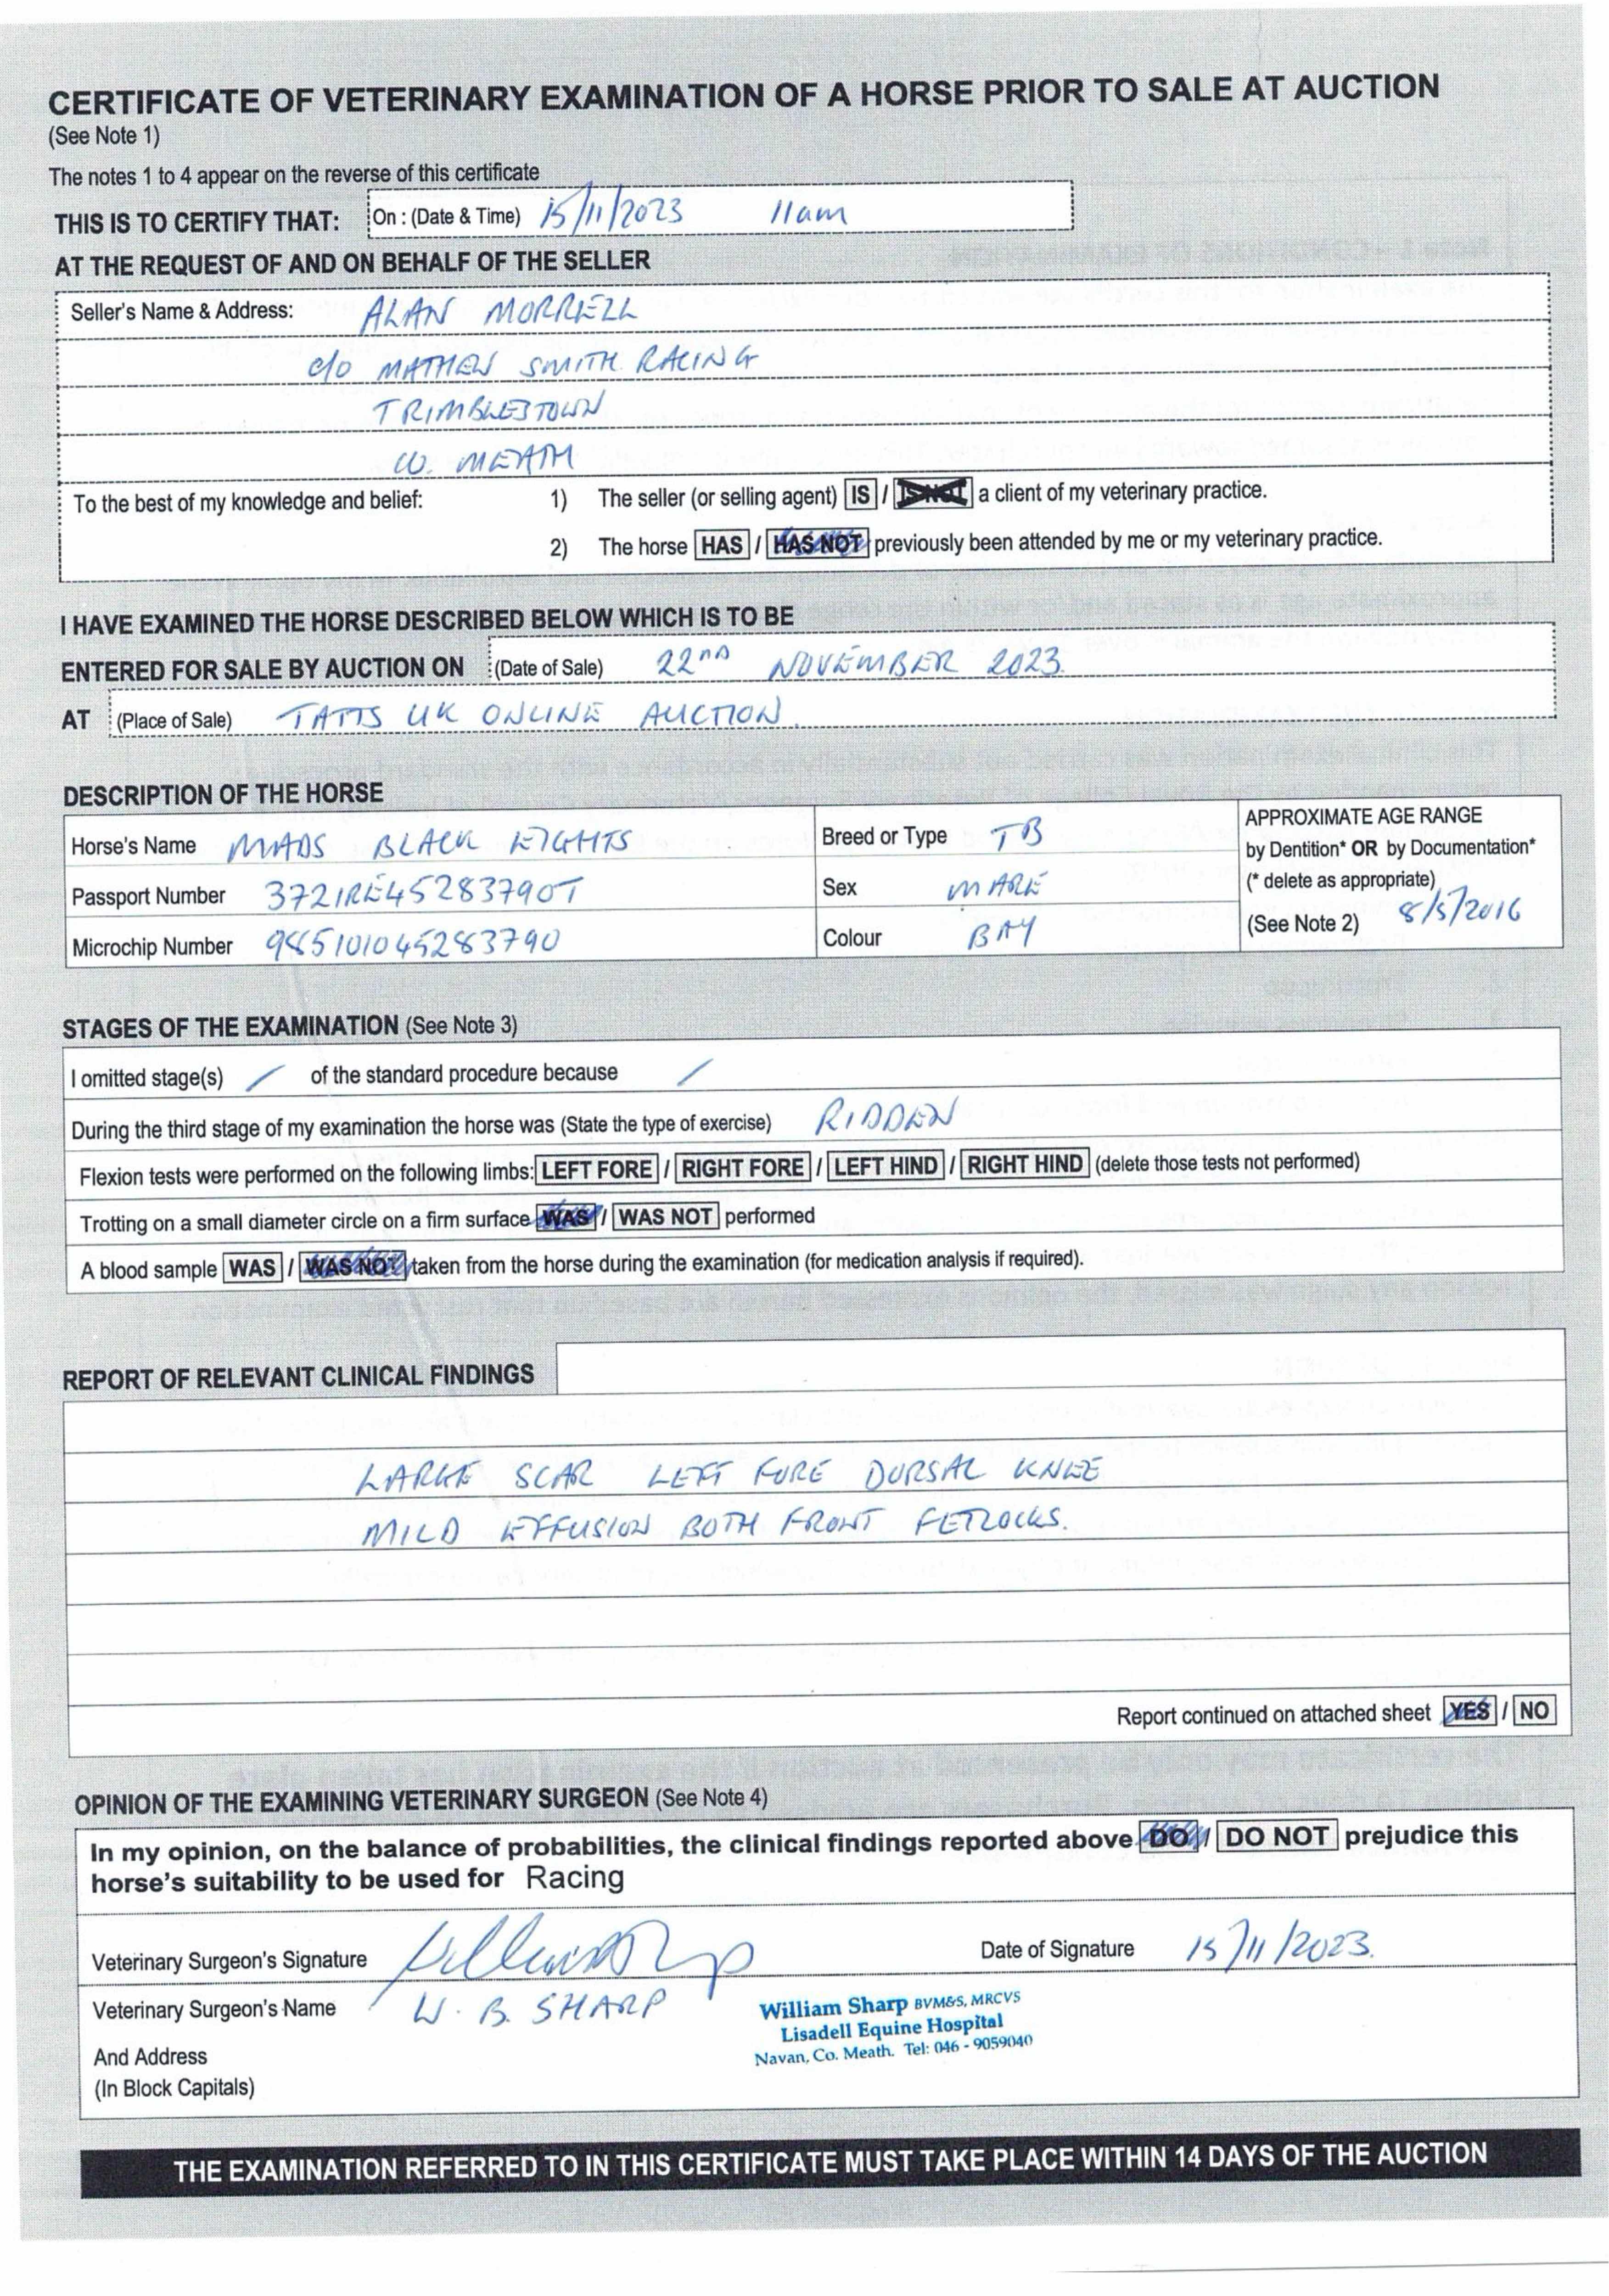 CERTIFICATE OF VETERINARY EXAMINATION OF A HORSE PRIOR TO SALE AT AUCTION
(See Note 1)
The notes 1 to 4 appear on the reverse of this certificate
THIS IS TO CERTIFY THAT: On : (Date & Time) 15/11/2023 11am
AT THE REQUEST OF AND ON BEHALF OF THE SELLER
Seller's Name & Address: ALAN MORRELL
c/o MATHEW SMITH RACING
TRIMBLESTOWN
CO. MEATH
To the best of my knowledge and belief: 1) The seller (or selling agent) IS / IS NOT a client of my veterinary practice.
2) The horse HAS / HAS NOT previously been attended by me or my veterinary practice.
I HAVE EXAMINED THE HORSE DESCRIBED BELOW WHICH IS TO BE
ENTERED FOR SALE BY AUCTION ON (Date of Sale) 22ND NOVEMBER 2023.
AT (Place of Sale) TATTS UK ONLINE AUCTION.
DESCRIPTION OF THE HORSE
Horse's Name MADS BLACK EIGHTS
Passport Number 372IRE45283790T
Microchip Number 985101045283790
Breed or Type TB
Sex MARE
Colour BAY
APPROXIMATE AGE RANGE
by Dentition* OR by Documentation*
(* delete as appropriate)
(See Note 2) 8/5/2016
STAGES OF THE EXAMINATION (See Note 3)
I omitted stage(s) / of the standard procedure because /
During the third stage of my examination the horse was (State the type of exercise) RIDDEN
Flexion tests were performed on the following limbs: LEFT FORE / RIGHT FORE / LEFT HIND / RIGHT HIND (delete those tests not performed)
Trotting on a small diameter circle on a firm surface WAS / WAS NOT performed
A blood sample WAS / WAS NOT taken from the horse during the examination (for medication analysis if required).
REPORT OF RELEVANT CLINICAL FINDINGS
LARGE SCAR LEFT FORE DORSAL KNEE
MILD EFFUSION BOTH FRONT FETLOCKS.
Report continued on attached sheet YES / NO
OPINION OF THE EXAMINING VETERINARY SURGEON (See Note 4)
In my opinion, on the balance of probabilities, the clinical findings reported above DO / DO NOT prejudice this
horse's suitability to be used for Racing
Veterinary Surgeon's Signature
Date of Signature 15/11/2023.
Veterinary Surgeon's Name W. B. SHARP
And Address
(In Block Capitals)
William Sharp BVM&S, MRCVS
Lisadell Equine Hospital
Navan, Co. Meath. Tel: 046 - 9059040
THE EXAMINATION REFERRED TO IN THIS CERTIFICATE MUST TAKE PLACE WITHIN 14 DAYS OF THE AUCTION